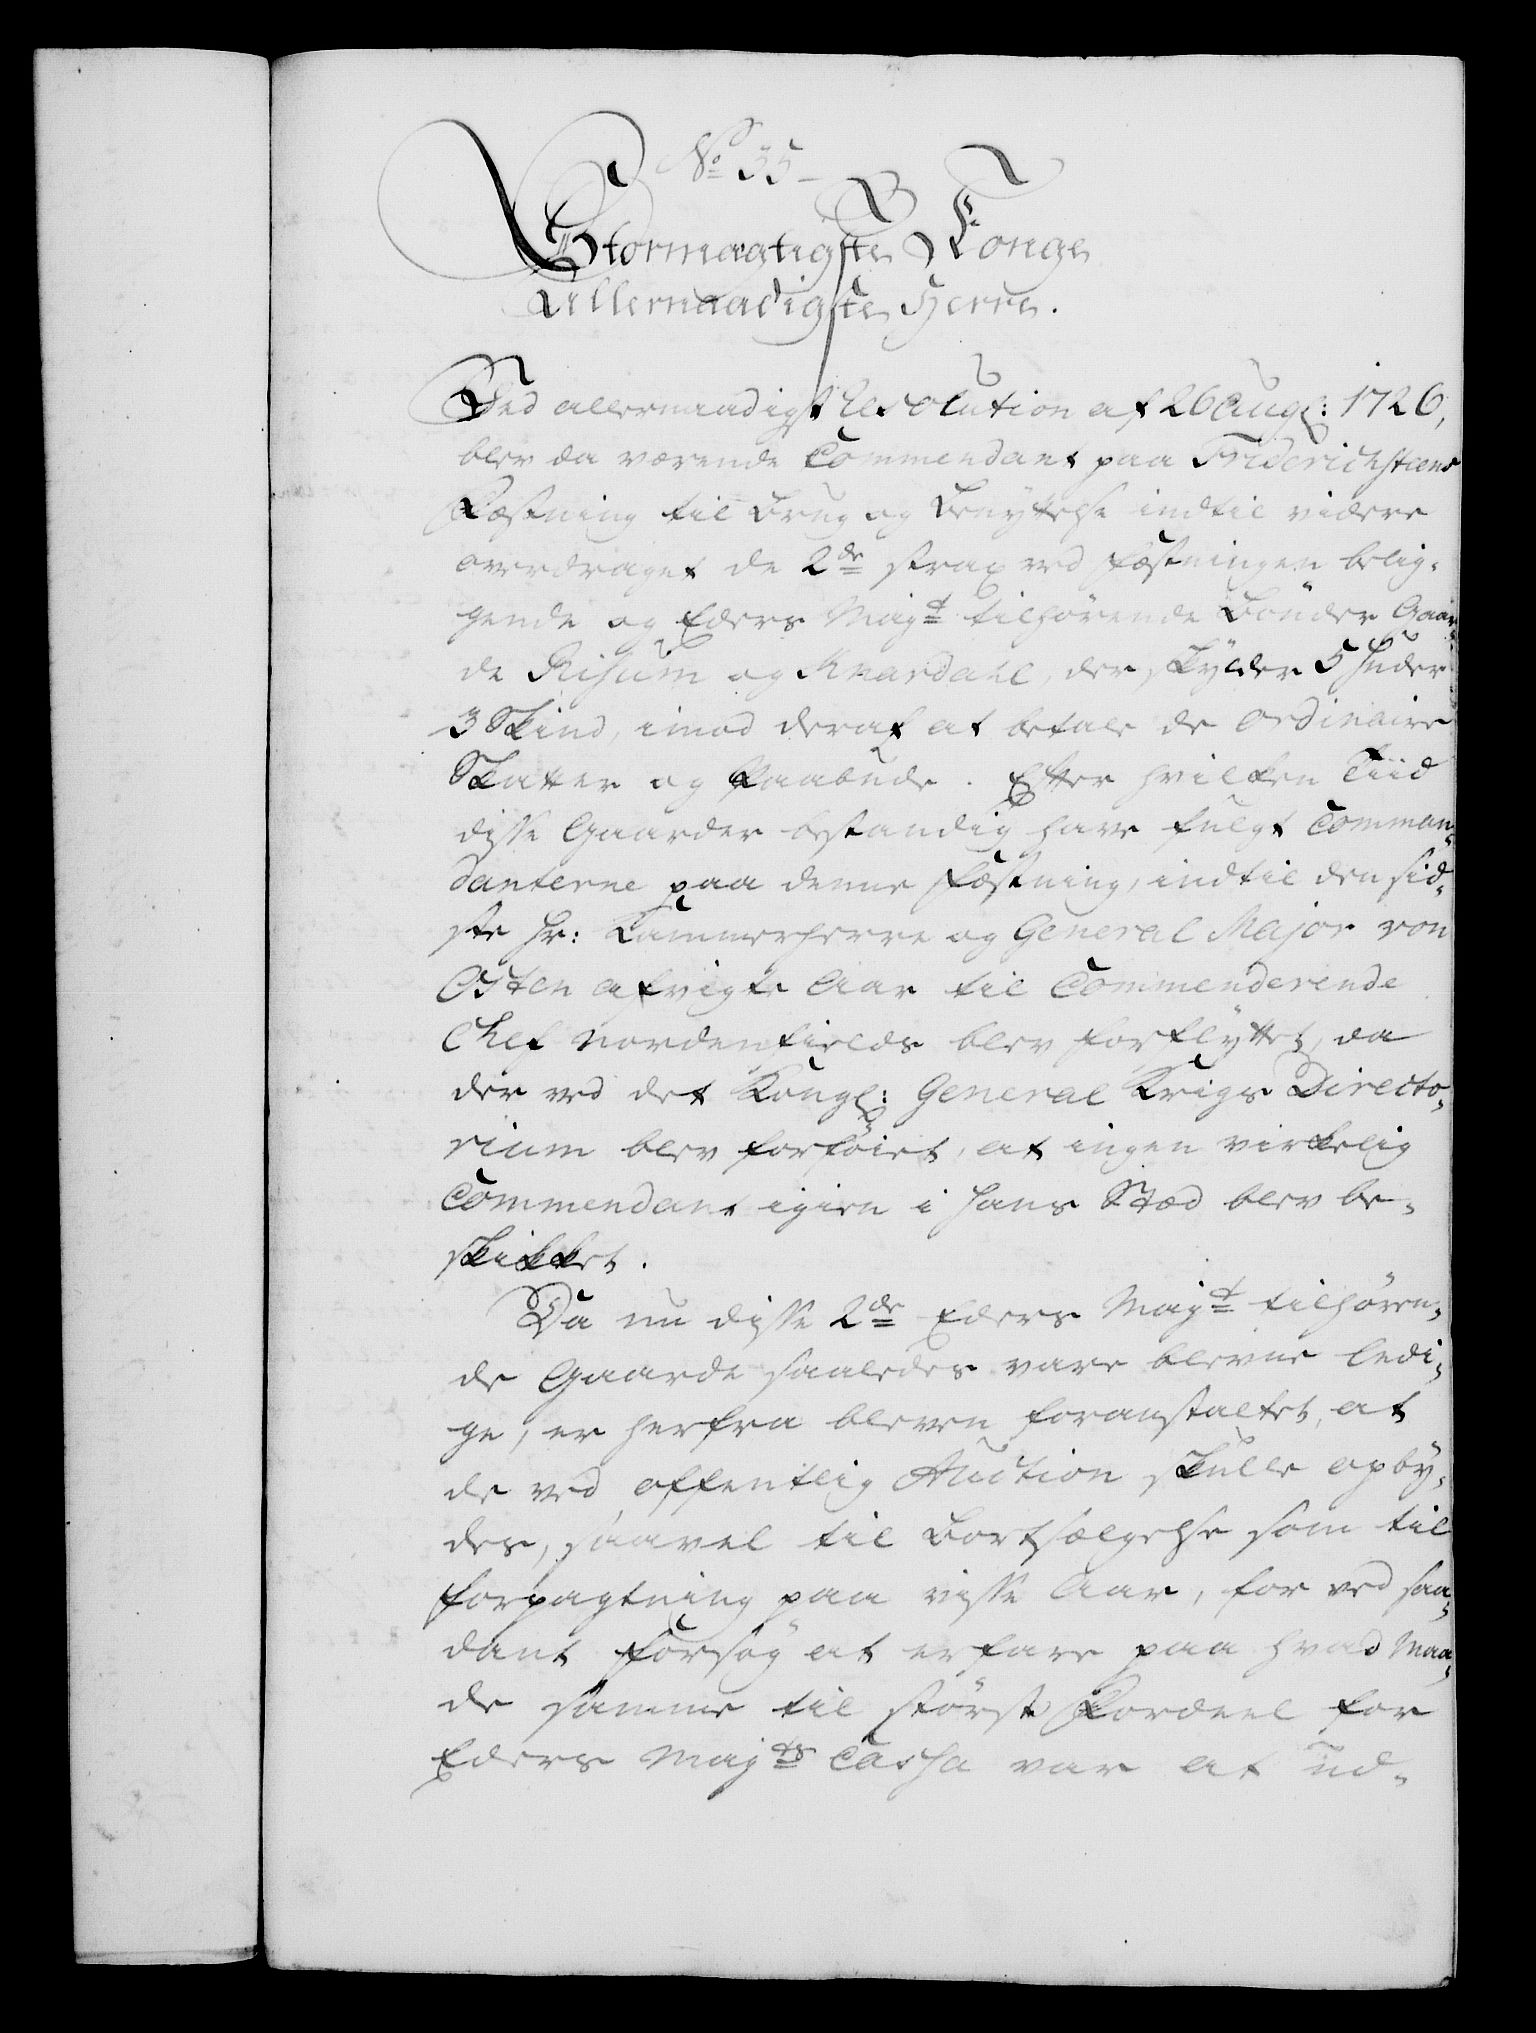 No 35
Stormægtigste Konge
Allernaadigste Herre.
Ved allernaadigst Resolution af 26 Aug: 1726,
blev da værende Commendant paa Friderichsteens
Fæstning til Brug og Benyttelse indtil videre
overdraget de 2de strax ved Fæstningen belig¬
gende og Eders Mayt tilhørende Bønder Gaar¬
de Risum og Knardahl, der skylder 5 Huder
3 Skind, imod deraf at betale de ordinaire
Skatter og Paabude. Efter hvilken Tiid
disse Gaarder bestandig have fulgt Commen¬
danterne paa denne Fæstning, indtil den sid¬
ste Hr: Kammerherre og General Major von
Osten afvigte Aar til Commenderende
Chef nordenfields blev forflyttet, da
der ved det Kongl: General Krigs Directo¬
rium blev forføiet, at ingen virkelig
Commendant igien i hans Stæd blev be¬
skikket.
Da nu disse 2de Eders Mayt tilhøren¬
de Gaarde saaledes vare blevne ledi¬
ge, er herfra bleven foranstaltet, at
de ved offentlig Auction skulle opby¬
des, saavel til Bortsælgelse som til
Forpagtning paa visse Aar, for ved saa¬
dant Forsøg at erfare paa hvad Maa¬
de samme til størst Fordeel for
Eders Mayts Cassa var at ud¬